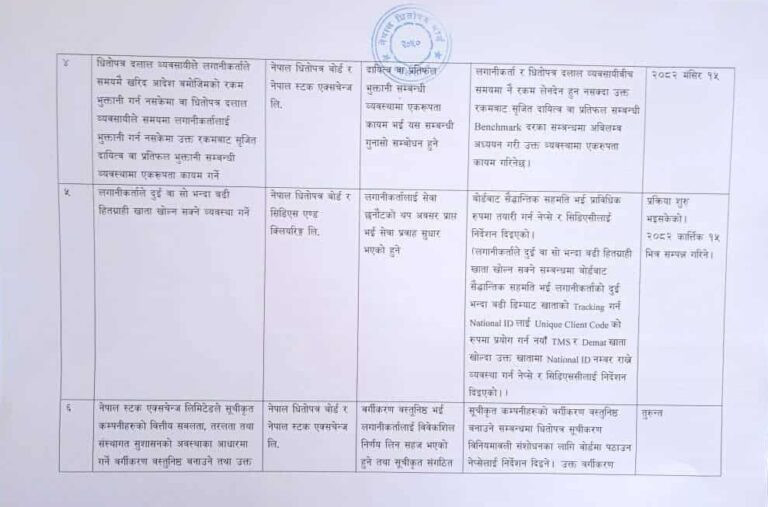 नेपाल धितोपत्र बोर्ड
२०५०
४
धितोपत्र दलाल व्यवसायीले लगानीकर्ताले
समयमै खरिद आदेश बमोजिमको रकम
भुक्तानी गर्न नसकेमा वा धितोपत्र दलाल
व्यवसायीले समयमा लगानीकर्तालाई
भुक्तानी गर्न नसकेमा उक्त रकमबाट सृजित
दायित्व वा प्रतिफल भुक्तानी सम्बन्धी
व्यवस्थामा एकरूपता कायम गर्ने
नेपाल धितोपत्र बोर्ड र
नेपाल स्टक एक्सचेन्ज
लि.
दायित्व वा प्रतिफल
भुक्तानी सम्बन्धी
व्यवस्थामा एकरूपता
कायम भई यस सम्बन्धी
गुनासो सम्बोधन हुने
लगानीकर्ता र धितोपत्र दलाल व्यवसायीबीच
समयमा नै रकम लेनदेन हुन नसक्दा उक्त
रकमबाट सृजित दायित्व वा प्रतिफल सम्बन्धी
Benchmark दरका सम्बन्धमा अविलम्ब
अध्ययन गरी उक्त व्यवस्थामा एकरूपता
कायम गरिनेछ।
२०८२ मंसिर १५
५
लगानीकर्ताले दुई वा सो भन्दा बढी
हितग्राही खाता खोल्न सक्ने व्यवस्था गर्ने
नेपाल धितोपत्र बोर्ड र
सिडिएस एण्ड
क्लियरिङ्ग लि.
लगानीकर्तालाई सेवा
छनौटको थप अवसर प्राप्त
भई सेवा प्रवाह सुधार
भएको हुने
बोर्डबाट सैद्धान्तिक सहमति भई प्राविधिक
रुपमा तयारी गर्न नेप्से र सिडिएसीलाई
निर्देशन दिइएको।
(लगानीकर्ताले दुई वा सो भन्दा बढी हितग्राही
खाता खोल्न सक्ने सम्बन्धमा बोर्डबाट
सैद्धान्तिक सहमति भई लगानीकर्ताको दुई
भन्दा बढी डिम्याट खाताको Tracking गर्न
National ID लाई Unique Client Code को
रुपमा प्रयोग गर्न नयाँ TMS र Demat खाता
खोल्दा उक्त खातामा National ID नम्बर राख्ने
व्यवस्था गर्न नेप्से र सिडिएससीलाई निर्देशन
दिइएको।।
प्रक्रिया शुरु
भइसकेको।
२०८२ कार्तिक १५
भित्र सम्पन्न गरिने।
६
नेपाल स्टक एक्सचेन्ज लिमिटेडले सूचीकृत
कम्पनीहरुको वित्तीय सबलता, तरलता तथा
संस्थागत सुशासनको अवस्थाका आधारमा
गर्ने वर्गीकरण वस्तुनिष्ठ बनाउने तथा उक्त
नेपाल धितोपत्र बोर्ड र
नेपाल स्टक एक्सचेन्ज
लि.
वर्गीकरण वस्तुनिष्ठ भई
लगानीकर्तालाई विवेकशिल
निर्णय लिन सहज भएको
हुने तथा सूचीकृत संगठित
सूचीकृत कम्पनीहरुको वर्गीकरण वस्तुनिष्ठ
बनाउने सम्बन्धमा धितोपत्र सूचीकरण
विनियमावली संशोधनका लागि बोर्डमा पठाउन
नेप्सेलाई निर्देशन दिइने। उक्त वर्गीकरण
तुरुन्त